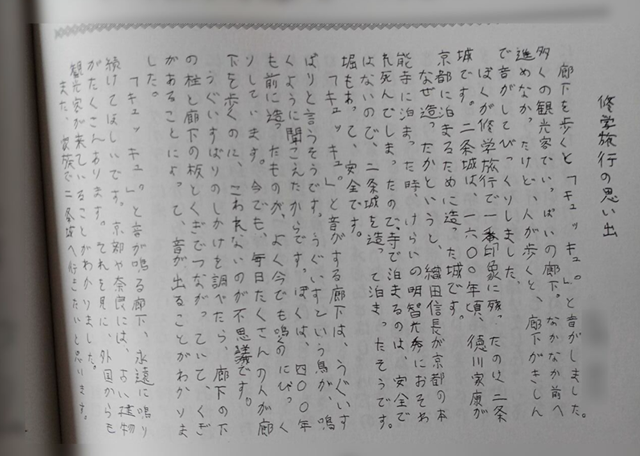 修学旅行の思い出
廊下を歩くと「キュッキュ。」と音がしました。
多くの観光客でいっぱいの廊下。なかなか前へ
進めなかったけど、人が歩くと、廊下がきしん
で音がしてびっくりしました。
ぼくが修学旅行で一番印象に残ったのは二条
城です。二条城は、一六〇〇年頃、徳川家康が
京都に泊まるために造った城です。
なぜ造ったかというと、織田信長が京都の本
能寺に泊まった時、けらいの明智光秀におそわ
れ死んでしまったので、寺で泊まるのは、安全で
はないので、二条城を造って泊まったそうです。
堀もあって、安全です。
「キュッキュ。」と音がする廊下は、うぐいす
ばりと言うそうです。うぐいすという鳥が、鳴
くように聞こえたからです。ぼくは、四〇〇年
も前に造ったものが、よく今でも鳴るのにびっく
りしています。今でも、毎日たくさんの人が廊
下を歩くのに、こわれないのが不思議です。
うぐいすばりのしかけを調べたら、廊下の下
の柱と廊下の板とくぎでつながっていて、くぎ
があることによって、音が出ることがわかりま
した。
「キュッキュ。」と音が鳴る廊下、永遠に鳴り
続けてほしいです。京都や奈良には、古い建物
がたくさんあります。それを見に、外国からも
観光客が来ていることがわかりました。
また、家族で二条城へ行きたいと思います。